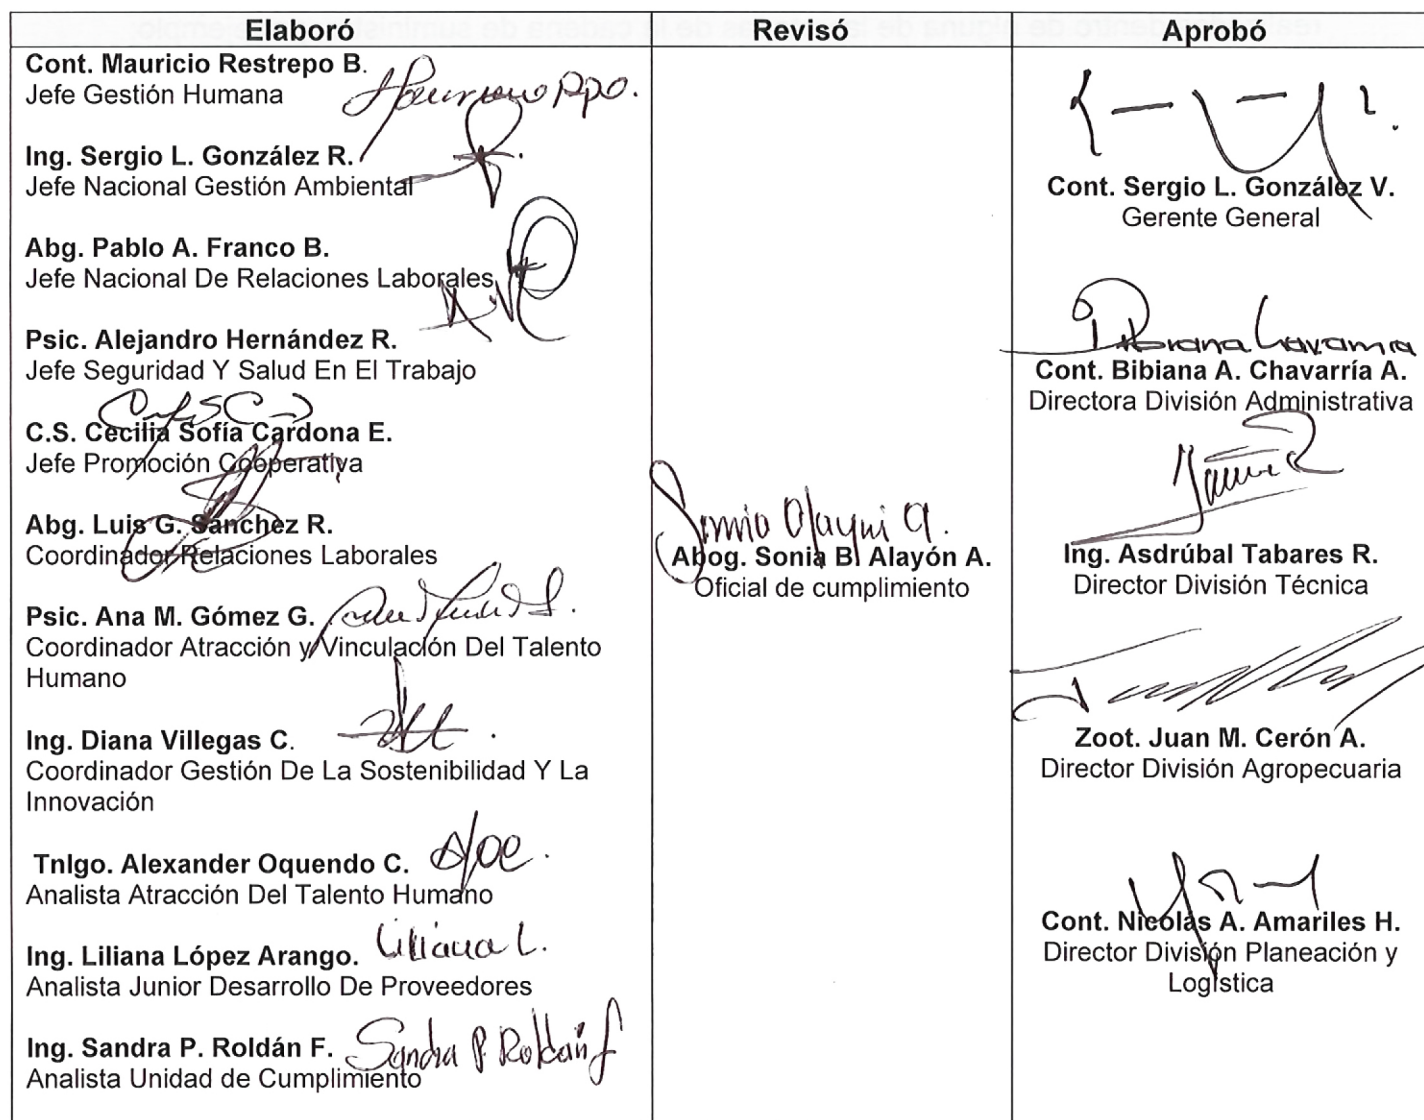 Elaboró
Revisó
Aprobó
Cont. Mauricio Restrepo B.
Jefe Gestión Humana
Ing. Sergio L. González R.
Jefe Nacional Gestión Ambiental
Abg. Pablo A. Franco B.
Jefe Nacional De Relaciones Laborales
Psic. Alejandro Hernández R.
Jefe Seguridad Y Salud En El Trabajo
C.S. Cecilia Sofía Cardona E.
Jefe Promoción Cooperativa
Abg. Luis G. Sánchez R.
Coordinador Relaciones Laborales
Psic. Ana M. Gómez G.
Coordinador Atracción y Vinculación Del Talento
Humano
Ing. Diana Villegas C.
Coordinador Gestión De La Sostenibilidad Y La
Innovación
Tnlgo. Alexander Oquendo C.
Analista Atracción Del Talento Humano
Ing. Liliana López Arango.
Liliana L.
Analista Junior Desarrollo De Proveedores
Ing. Sandra P. Roldán F.
Sandra P. Roldán f
Analista Unidad de Cumplimiento
Abog. Sonia B. Alayón A.
Oficial de cumplimiento
Cont. Sergio L. González V.
Gerente General
Cont. Bibiana A. Chavarría A.
Directora División Administrativa
Ing. Asdrúbal Tabares R.
Director División Técnica
Zoot. Juan M. Cerón A.
Director División Agropecuaria
Cont. Nicolás A. Amariles H.
Director División Planeación y
Logística